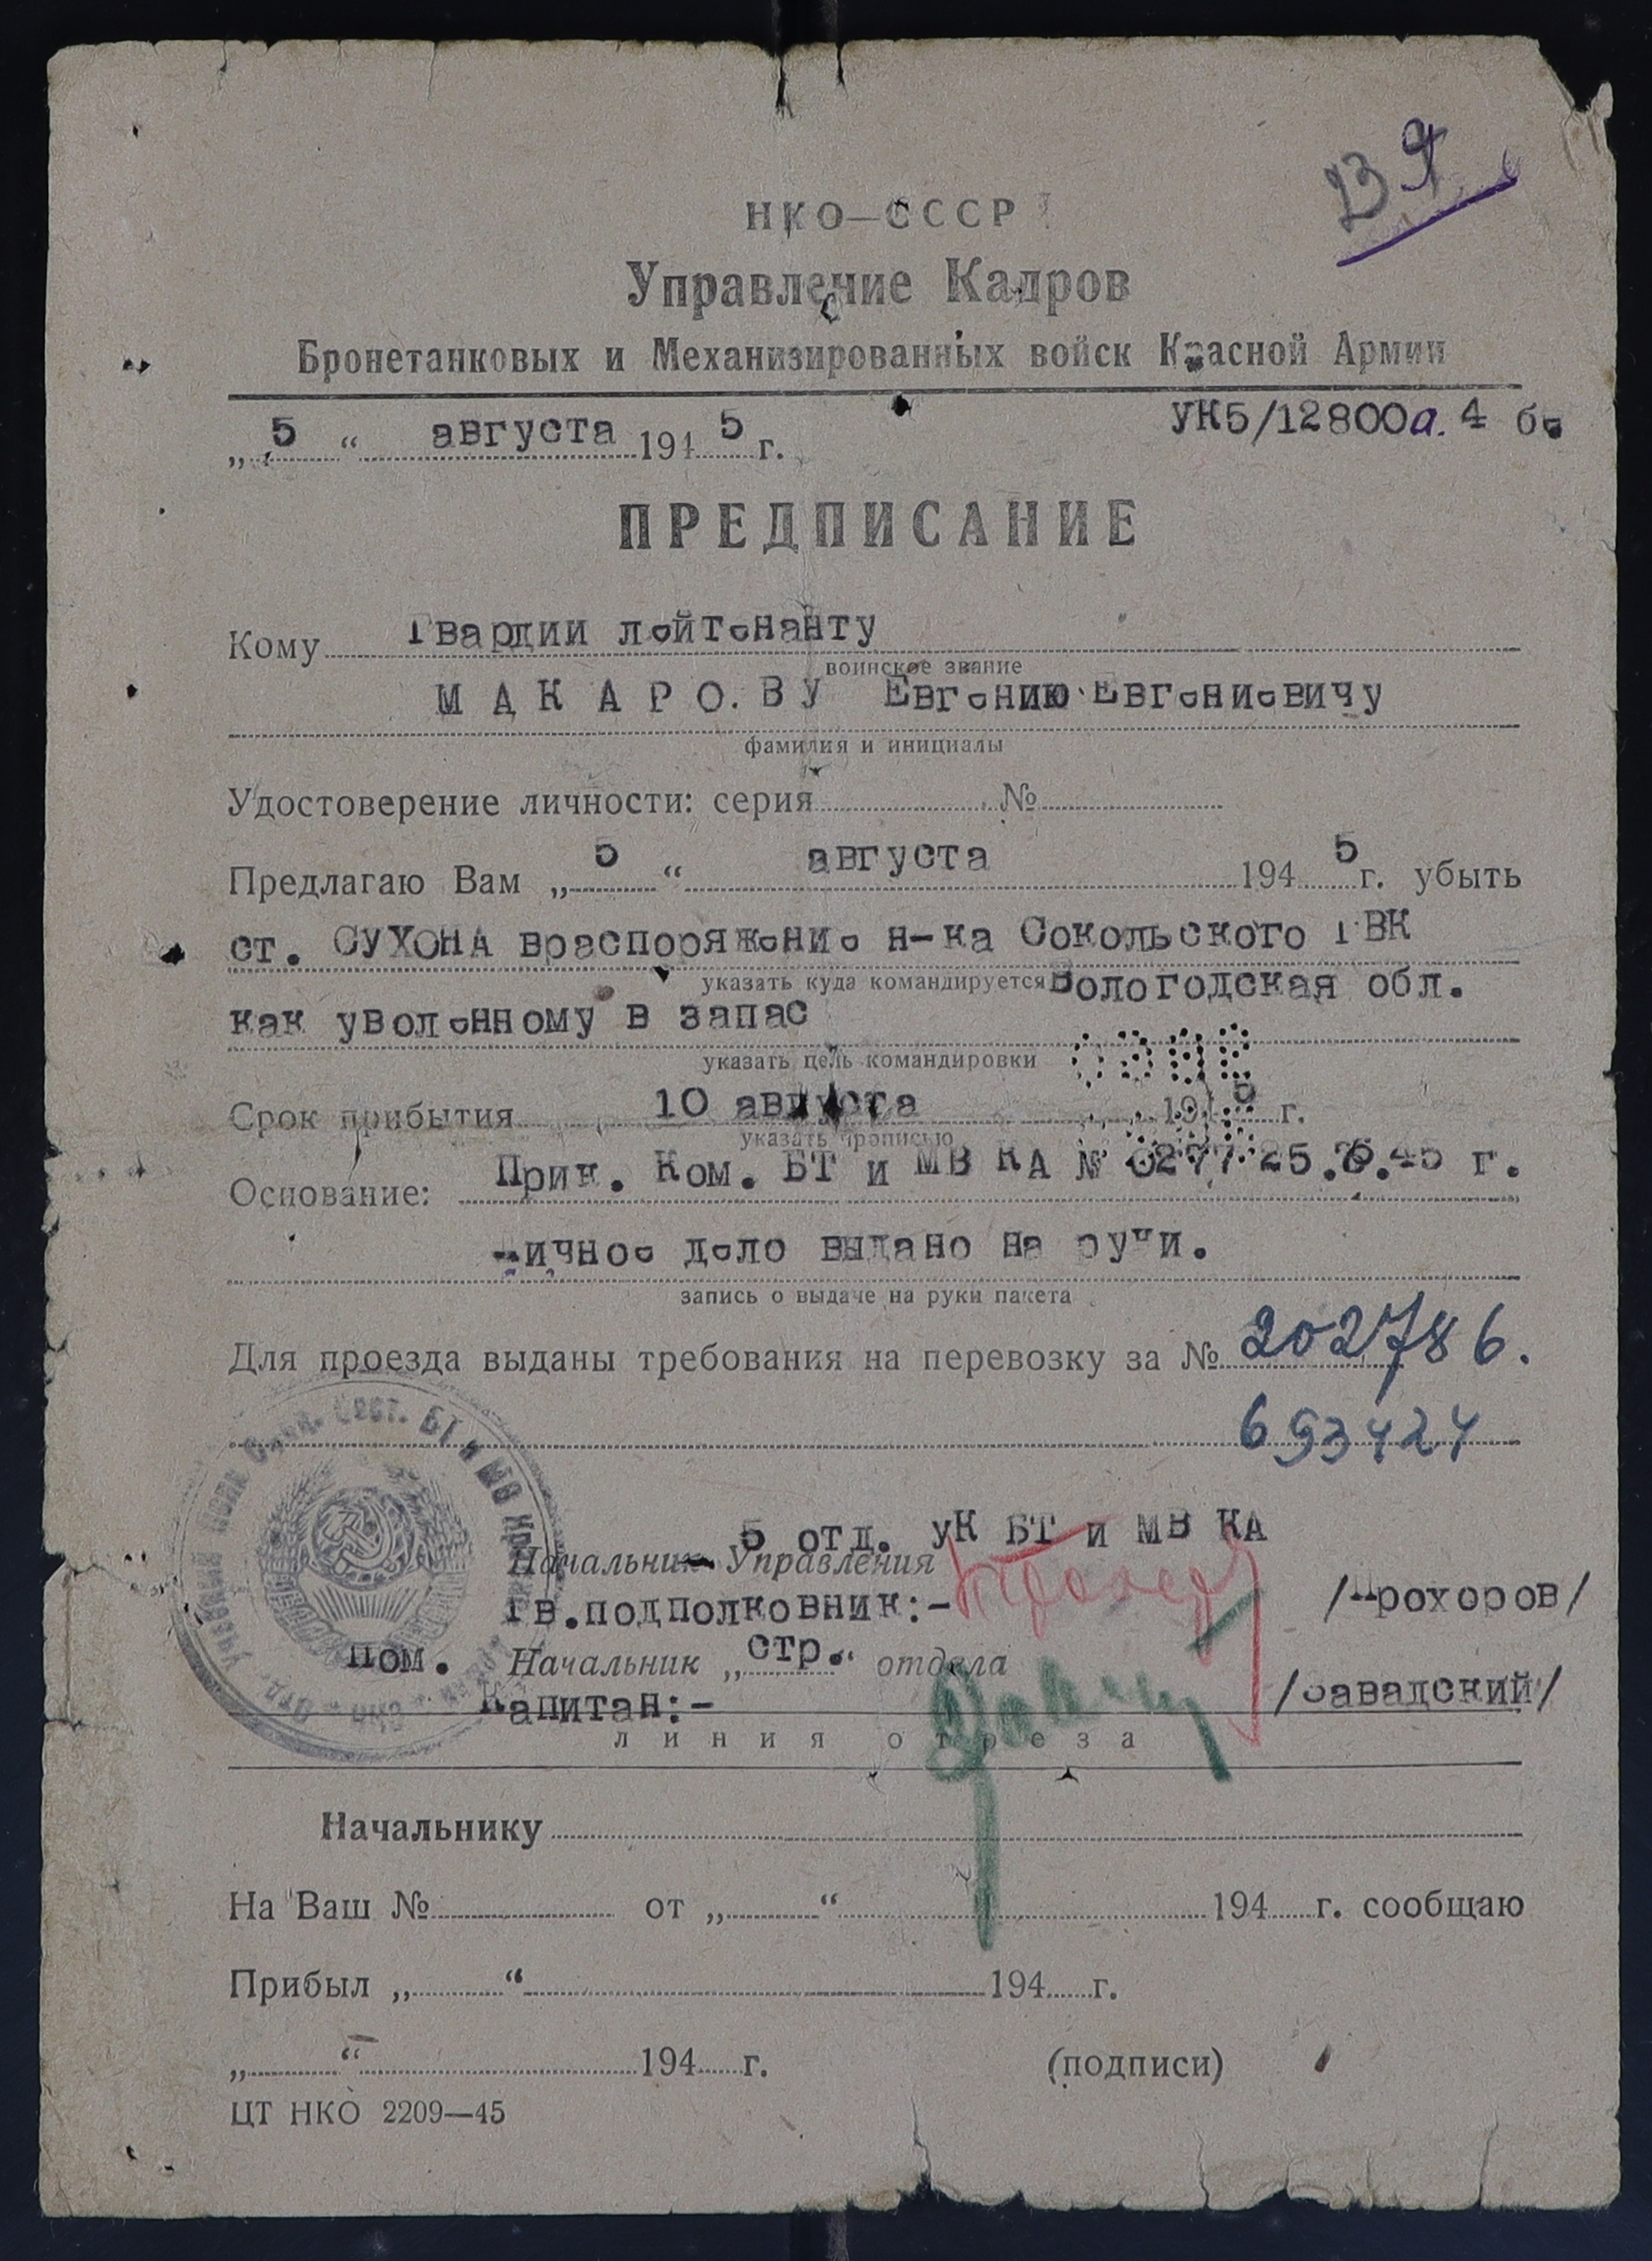 НКО—СССР
Управление Кадров
Бронетанковых и Механизированных войск Красной Армии
„ 5 “ августа 1945 г.
УК5/12800а. 4 бе
ПРЕДПИСАНИЕ
Кому Гвардии лейтенанту
воинское звание
МАКАРО.ВУ Евгению Евгениевичу
фамилия и инициалы
Удостоверение личности: серия № 
Предлагаю Вам „ 5 “ августа 1945 г. убыть
ст. СУХОНА враспоряжение н-ка Сокольского ГВК
указать куда командируется Вологодская обл.
как уволенному в запас
указать цель командировки
Срок прибытия 10 августа 1945 г.
указать прописью
Основание: Прик. Ком. БТ и МВ КА № 0277 25.7.45 г.
Личное дело выдано на руки.
запись о выдаче на руки пакета
Для проезда выданы требования на перевозку за № 202786.
693424
5 отд. УК БТ и МВ КА
Начальник Управления
Гв.подполковник:- /Прохоров/
Пом. Начальник „стр.“ отдела
Капитан:- /Завадский/
линия отреза
Начальнику
На Ваш № от „ “ 194 г. сообщаю
Прибыл „ “ 194 г.
„ “ 194 г. (подписи)
ЦТ НКО 2209—45